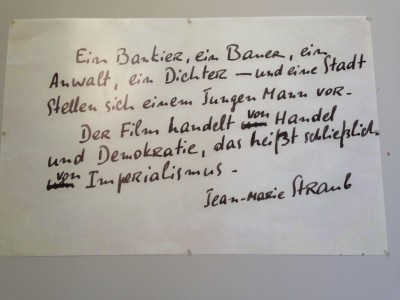 Ein Bankier, ein Bauer, ein
Anwalt, ein Dichter – und eine Stadt
Stellen sich einem Jungen Mann vor.
Der Film handelt von Handel
und Demokratie, das heißt schließlich
von Imperialismus.
Jean-Marie Straub